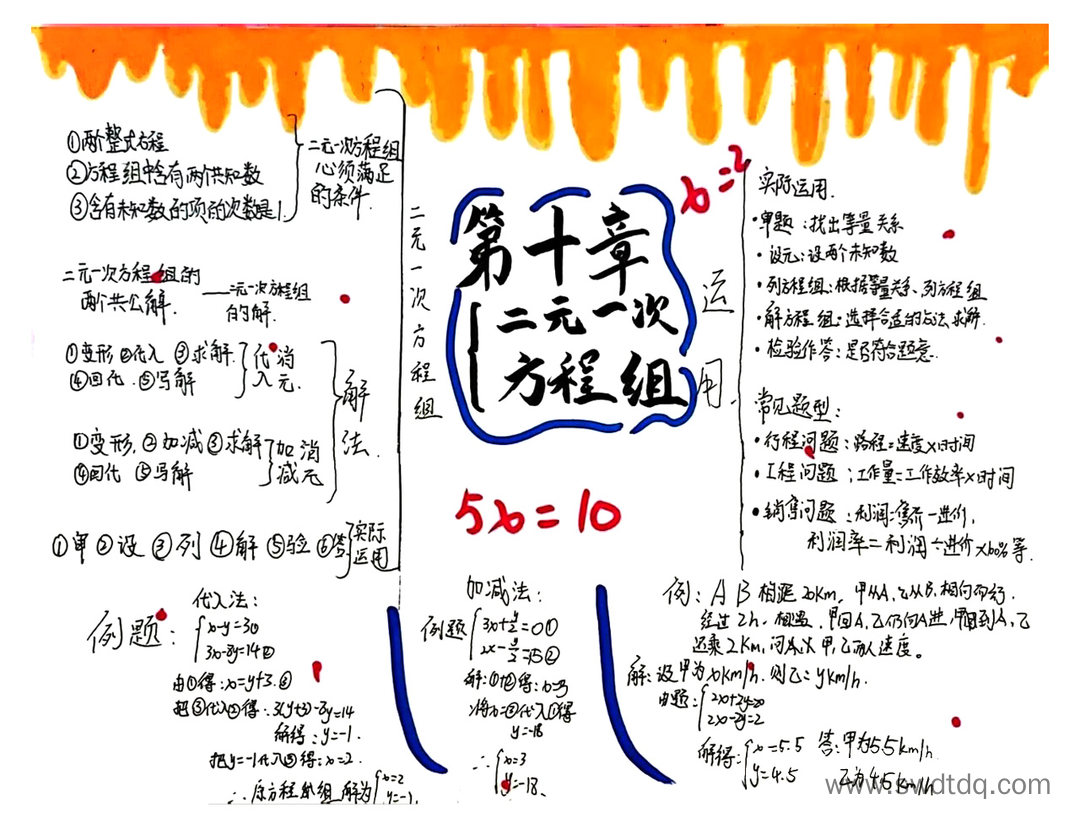 ①两个整式方程
②方程组中含有两个共知数
③含有未知数的项的次数是1.
二元一次方程组
必须满足
的条件.
二元一次方程组的
两个共公解.
二元一次方程组
的解.
①变形 ②代入 ③求解.
④回代 ⑤写解
代入
消元.
①变形, ②加减 ③求解
④回代 ⑤写解
加减
消元
解法.
①审 ②设 ③列 ④解 ⑤验 ⑥答
实际
运用
二元一次方程组
第十章
二元一次
方程组
运用.
x=2
5x=10
实际运用.
·审题:找出等量关系
·设元:设两个未知数
·列方程组:根据等量关系,列方程组
·解方程组:选择合适的方法求解.
·检验作答:是否符合题意.
常见题型:
·行程问题:路程=速度×时间
·工程问题:工作量=工作效率×时间
·销售问题:利润=售价-进价,
利润率=利润÷进价×100%等.
例题:
代入法:
x-y=3①
3x-8y=14②
由①得:x=y+3.③
把③代入②得:3(y+3)-8y=14
解得:y=-1.
把y=-1代入③得:x=2.
∴原方程组解为
x=2
y=-1.
加减法:
例题
3x+y/2=0①
2x-y/2=15②
解:①+②得:x=3
将x=3代入①得
y=-18
∴
x=3
y=-18.
例:A B 相距20km,甲从A,乙从B,相向而行.
经过2h,相遇,甲回A,乙仍向A进,甲回到A,乙
还乘2km,问 甲,乙两人速度。
解:设甲为xkm/h.则乙:ykm/h.
由题:
2x+2y=20
2x-2y=2
解得:
x=5.5
y=4.5
答:甲为5.5km/h.
乙为4.5km/h
www.svdtdq.com